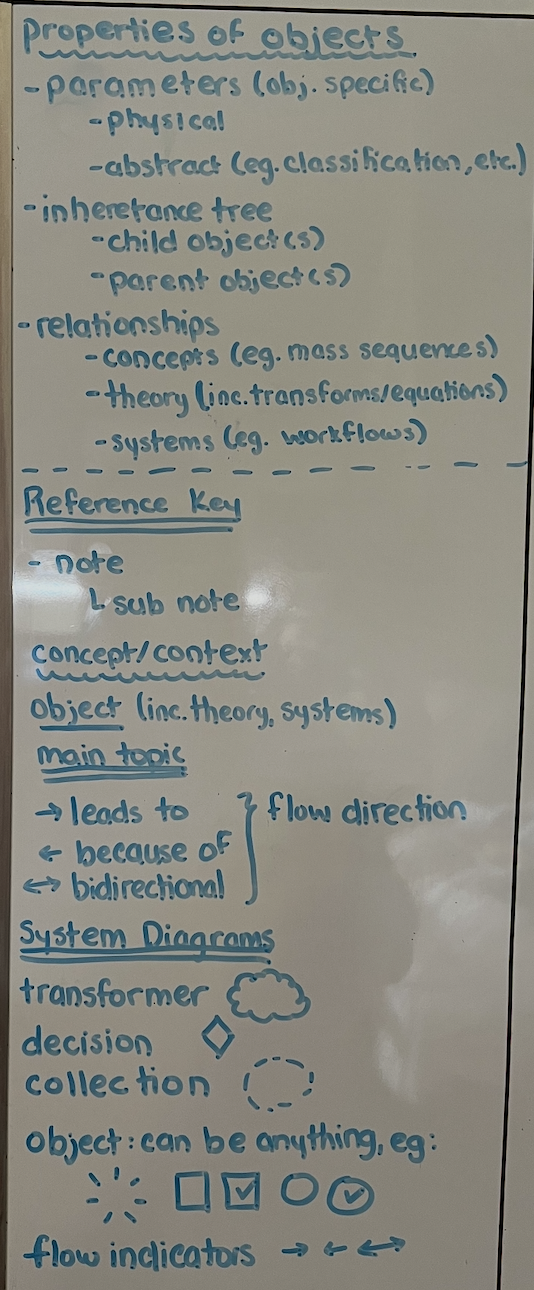 properties of objects
- parameters (obj. specific)
- physical
- abstract (eg. classification, etc.)
- inheretance tree
- child object(s)
- parent object(s)
- relationships
- concepts (eg. mass sequences)
- theory (inc. transforms/equations)
- systems (eg. workflows)
Reference Key
- note
└ sub note
concept/context
object (inc. theory, systems)
main topic
→ leads to } flow direction
← because of
↔ bidirectional
System Diagrams
transformer
decision
collection
object: can be anything, eg:
flow indicators → ← ↔